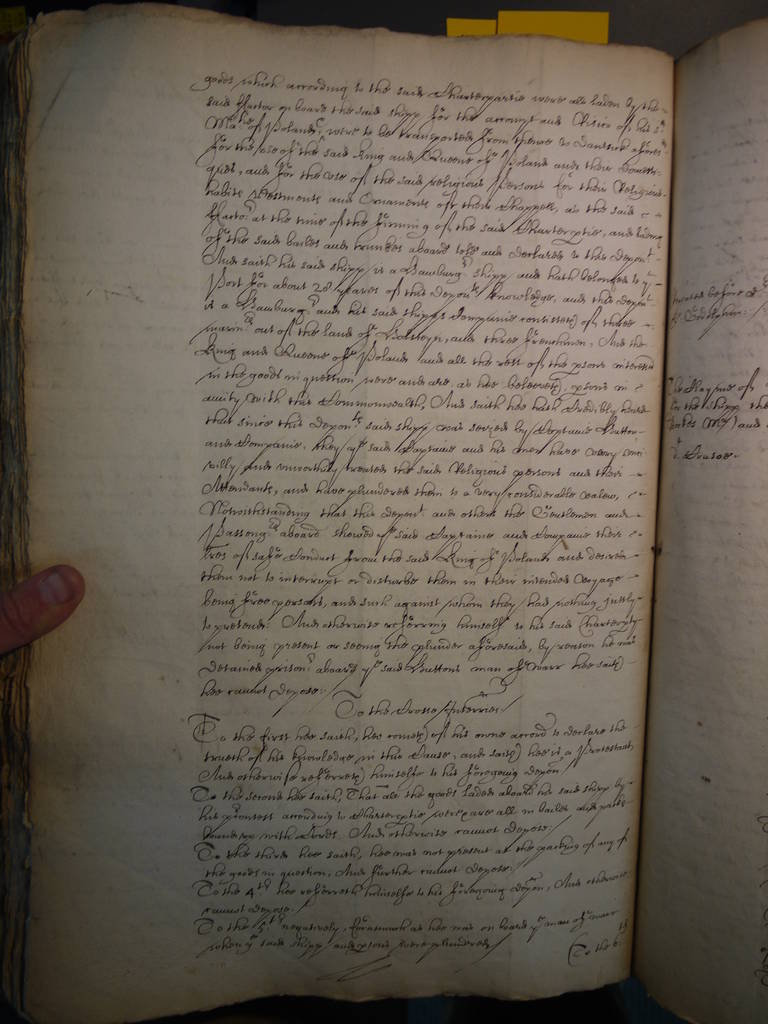 goods which according to the said Charterpartie were all laden by the
said Factor on board the said shipp for the accompt and Risico of his sd
Matie of Poland, were to be transported from thence to Dantzick afores:
for the use of the said King and Queene of Poland and their Domesti-
ques, and for the use of the said religious Persons for their Religious
habits Vestments and Ornaments of their Chappell, as the said
Factor at the time of the firming of the said Charterptie, and lading
of the said bailes and trunkes aboard told and declared to this Depont.
And saith his said shipp is a Hamburg shipp and hath belonged to yt
Port for about 28 yeares of this Deponts knowledge, and this Depont
is a Hamburgr and his said shipps Companie consisted of three
marinrs out of the land of Holsteyn, and three frenchmen, And the
King and Queene of Poland and all the rest of the psons interested
in the goods in question were and are, as hee beleeveth, psons in
amity with this Commonwealth, And saith hee hath Credibly heard
that since this Deponts said shipp was seized by Captaine Button
and Companie, they ye said Captaine and his men have very unci-
villy and unworthily treated the said Religious persons and their
Attendants, and have plundered them to a very considerable valew,
Notwithstanding that this Depont and others the Gentlemen and
Passengrs aboard shewed ye said Captaine and Companie their
lres of safe Conduct from the said King of Poland and desired
them not to interrupt or disturbe them in their intended Voyage
being free persons, and such against whom they had nothing justly
to pretend: And otherwise referring himself to his said Charterpty
not being present or seeing the plunder aforesaid, by reason he was
detained prisonr aboard ye said Buttons man of warr hee saith
hee cannot depose./
To the Crosse Interries./
To the first hee saith, hee cometh of his owne accord to declare the
trueth of his knowledge in this Cause, and saith hee is a Protestant,
And otherwise referreth himselfe to his foregoing depon
To the second hee saith, That all the goods laden aboard his said shipp by
his contest according to Charterptie were are all in bailes and packs
bound up with Cords. And otherwise cannot depose./
To the third hee saith, hee was not present at the packing of any of
the goods in question, And further cannot depose./
To the 4th hee referreth himselfe to his foregoing depon, And otherwise
cannot depose./
To the 5th negatively, forasmuch as hee was on board ye man of warr
when ye said shipp and psons were plundered./
To the 6th